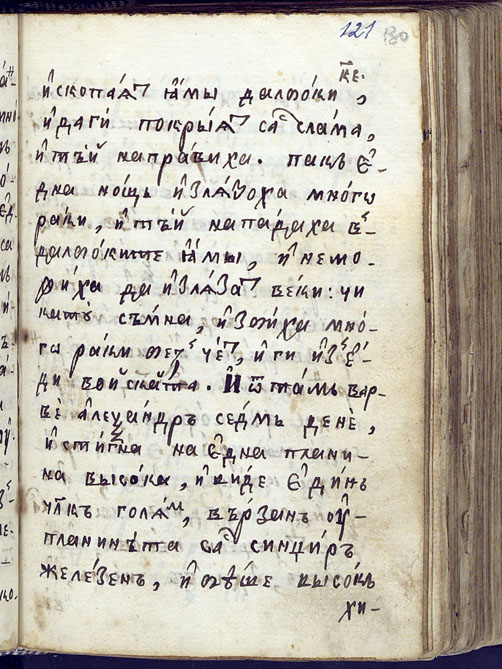 121 130
к҃е.
и҆скопаа́тъ ꙗ҆́мы дльбо́ки,
и҆ да ги покры́атъ са сла́ма,
и҆ ты́й напра́виха. пакъ є҆-
дна но́щь и҆злѧ́ѕоха мно́гѡ
ра́ки, и҆ ты́й напа́даха в-
дльбо́ките ꙗ҆́мы, и҆ не мо-
жи́ха да и҆злѧ́затъ ве́ки: чи
като̀ съ́мна, и҆
гѡ ра́ки и҆ ги и҆з е҆́-
ди войска́та. И҆ ѿта́мъ вар-
вѐ а҆леѯа́ндръ се́дмь денѐ,
и҆ сти́гна на є҆дна̀ плани-
на̀ висо́ка, и҆ ви́де є҆ди́нь
чл҃къ голѧ́м, въ́рзанъ оу҆-
планинъ́та са синџи́ръ
желе́зенъ, и҆ бѣ́ше висо́къ
хи-